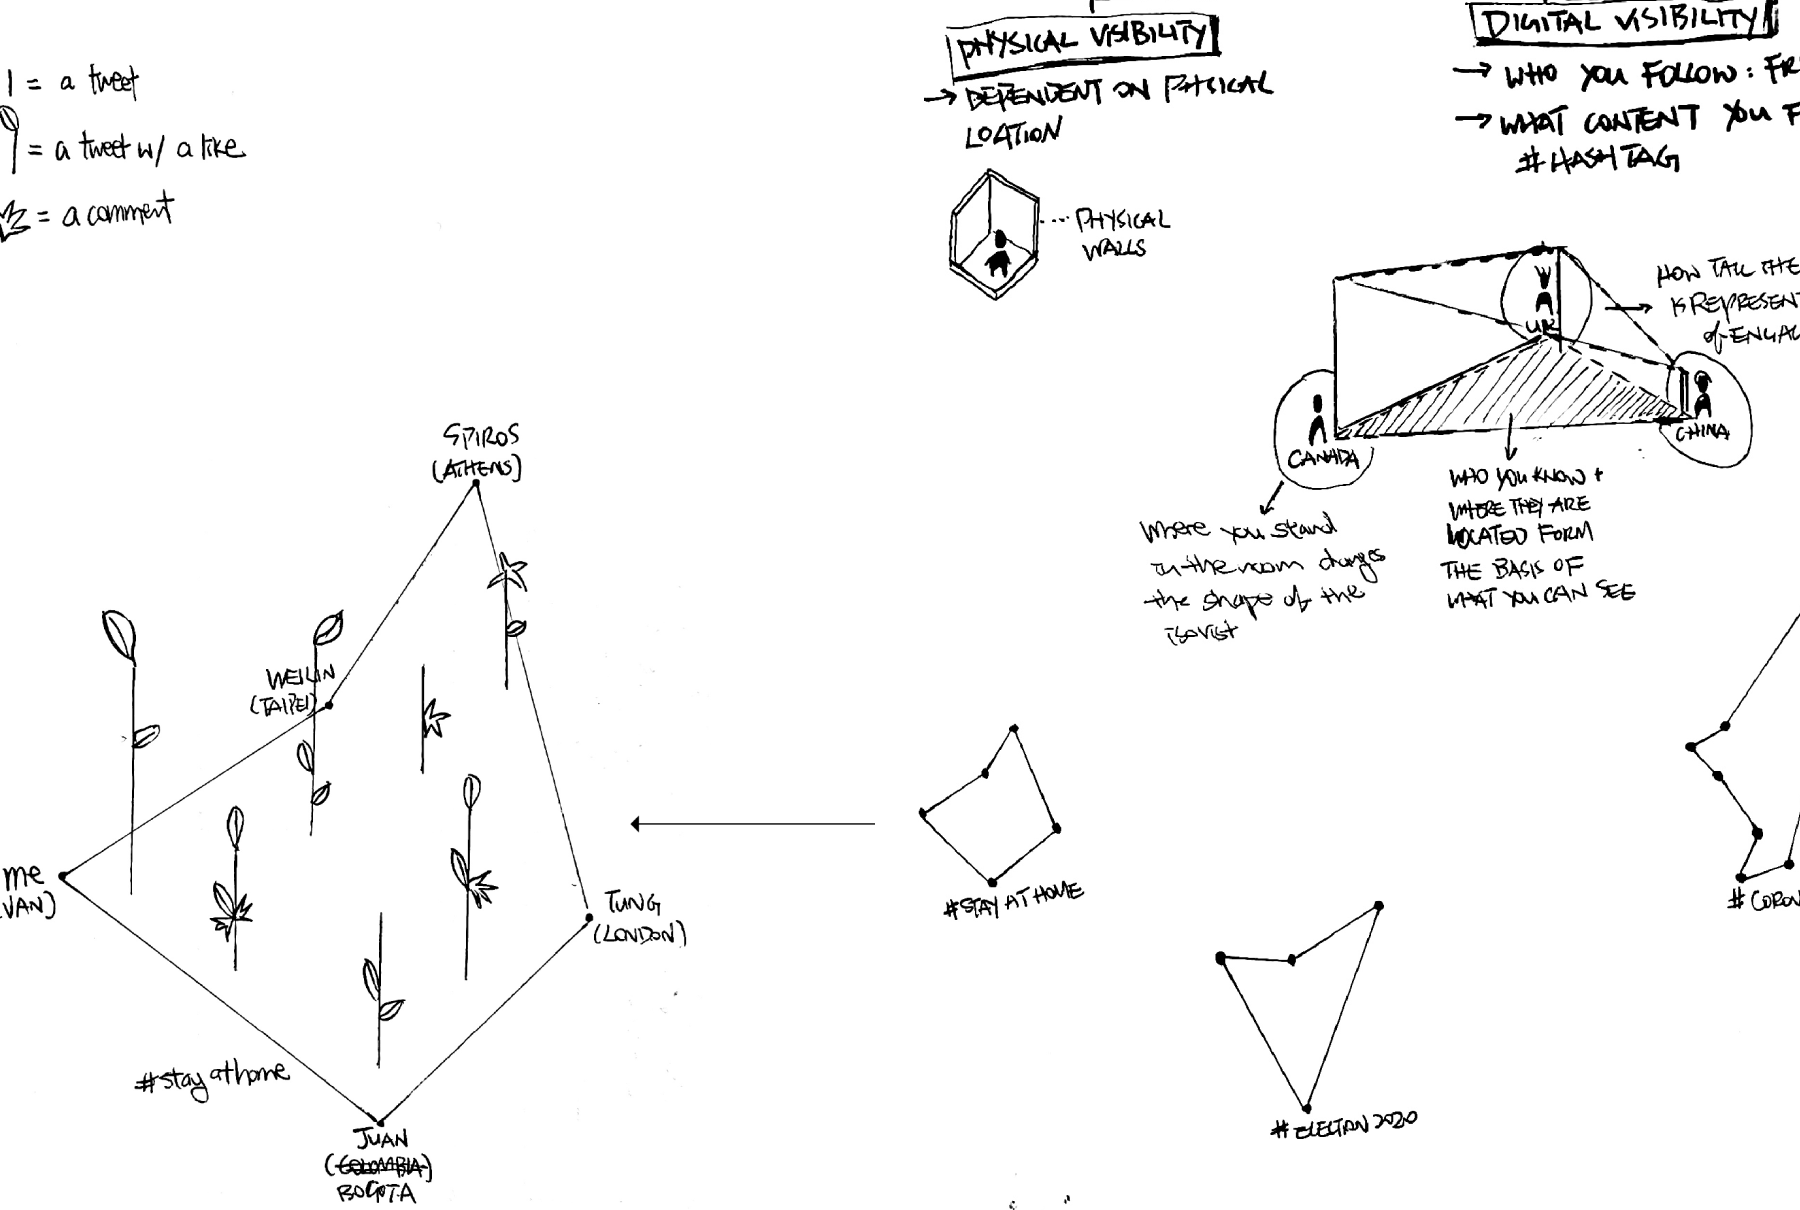 1 = a tweet
= a tweet w/ a like
= a comment
PHYSICAL VISIBILITY
→ DEPENDENT ON PHSICAL
LOATION
PHYSICAL
WALLS
DIGITAL VISIBILITY
→ WHO YOU FOLLOW: FR
→ WHAT CONTENT YOU F
#HASHTAG
HOW TALL THE
IS REPRESENT
of ENGA
UK
CANADA
CHINA
where you stand
in the room changes
the shape of the
isovist
WHO YOU KNOW +
WHERE THEY ARE
LOCATED FORM
THE BASIS OF
WHAT YOU CAN SEE
SPIROS
(ATHENS)
WEILIN
(TAIPEI)
me
(VAN)
TUNG
(LONDON)
#stay at home
JUAN
(COLOMBIA)
BOGOTA
#STAY AT HOME
#ELECTION 2020
#CORON